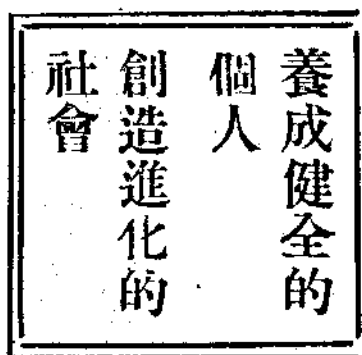 養成健全的
個人
創造進化的
社會